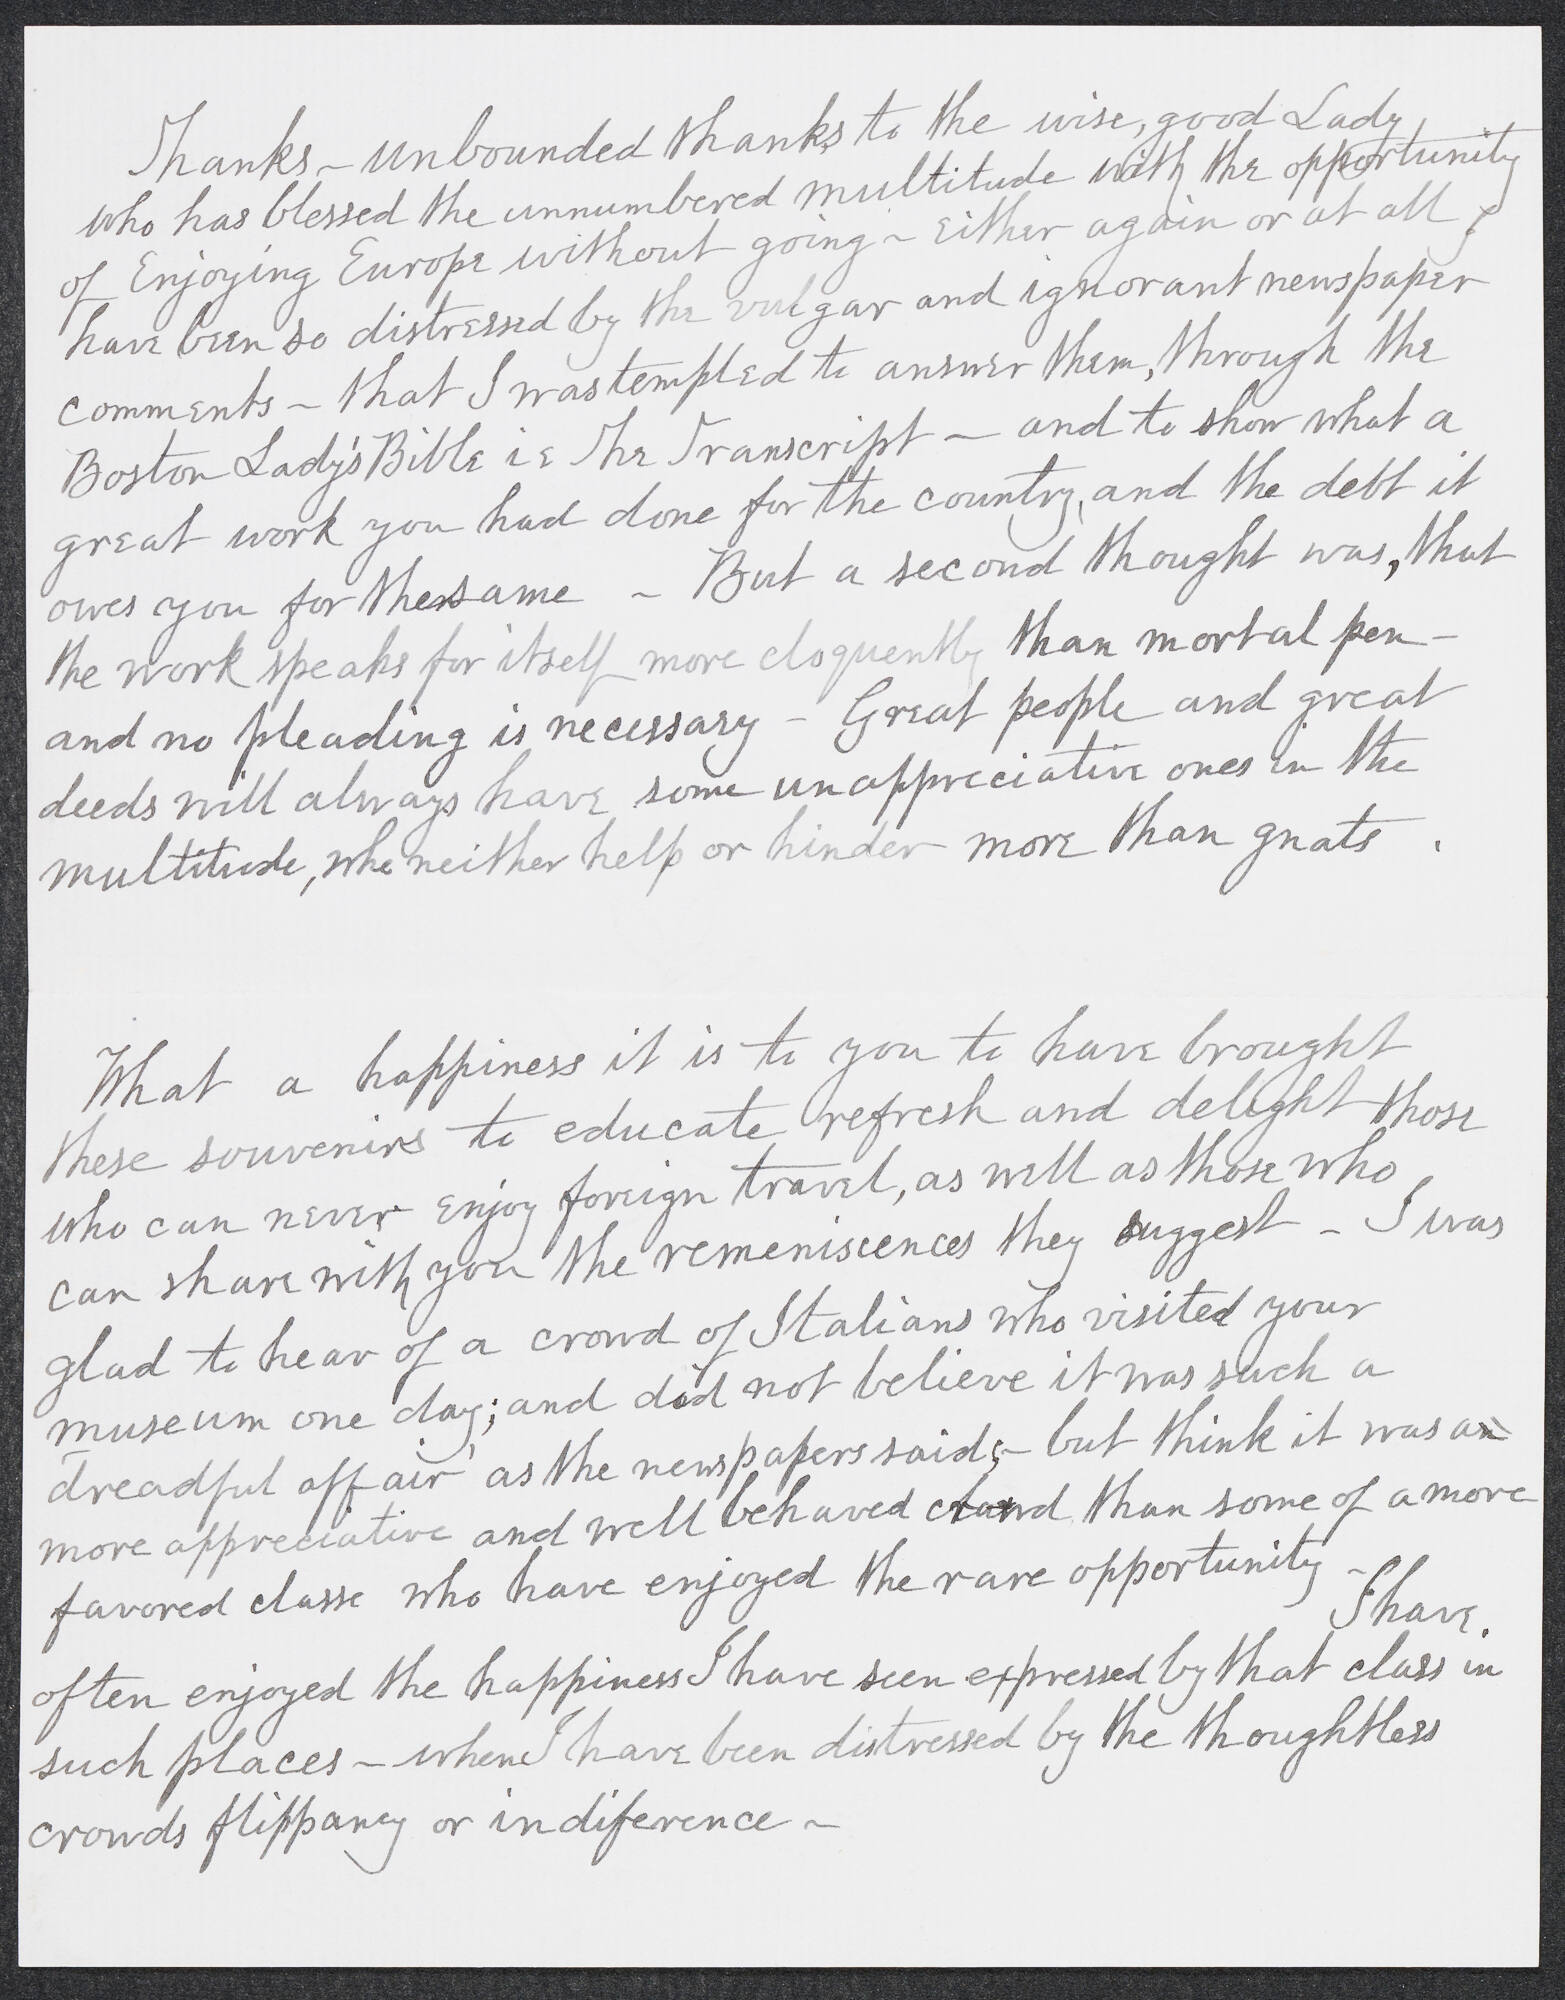 Thanks – unbounded thanks to the wise, good Lady
who has blessed the unnumbered multitude with the opportunity
of Enjoying Europe without going – Either again or at all I
have been so distressed by the vulgar and ignorant newspaper
comments – that I was tempted to answer them, through the
Boston Lady's Bible i e The Transcript – and to show what a
great work you had done for the country, and the debt it
owes you for the same – But a second thought was, that
the work speaks for itself more eloquently than mortal pen –
and no pleading is necessary – Great people and great
deeds will always have some unappreciative ones in the
multitude, who neither help or hinder more than gnats .
What a happiness it is to you to have brought
these souvenirs to educate refresh and delight those
who can never enjoy foreign travel, as well as those who
can share with you the remeniscences they suggest – I was
glad to hear of a crowd of Italians who visited your
museum one day; and did not believe it was such a
dreadful affair as the newspapers said; – but think it was a
more appreciative and well behaved crowd than some of a more
favored classe who have enjoyed the rare opportunity –
I have
often enjoyed the happiness I have seen expressed by that class in
such places – when I have been distressed by the thoughtless
crowds flippancy or indiference –